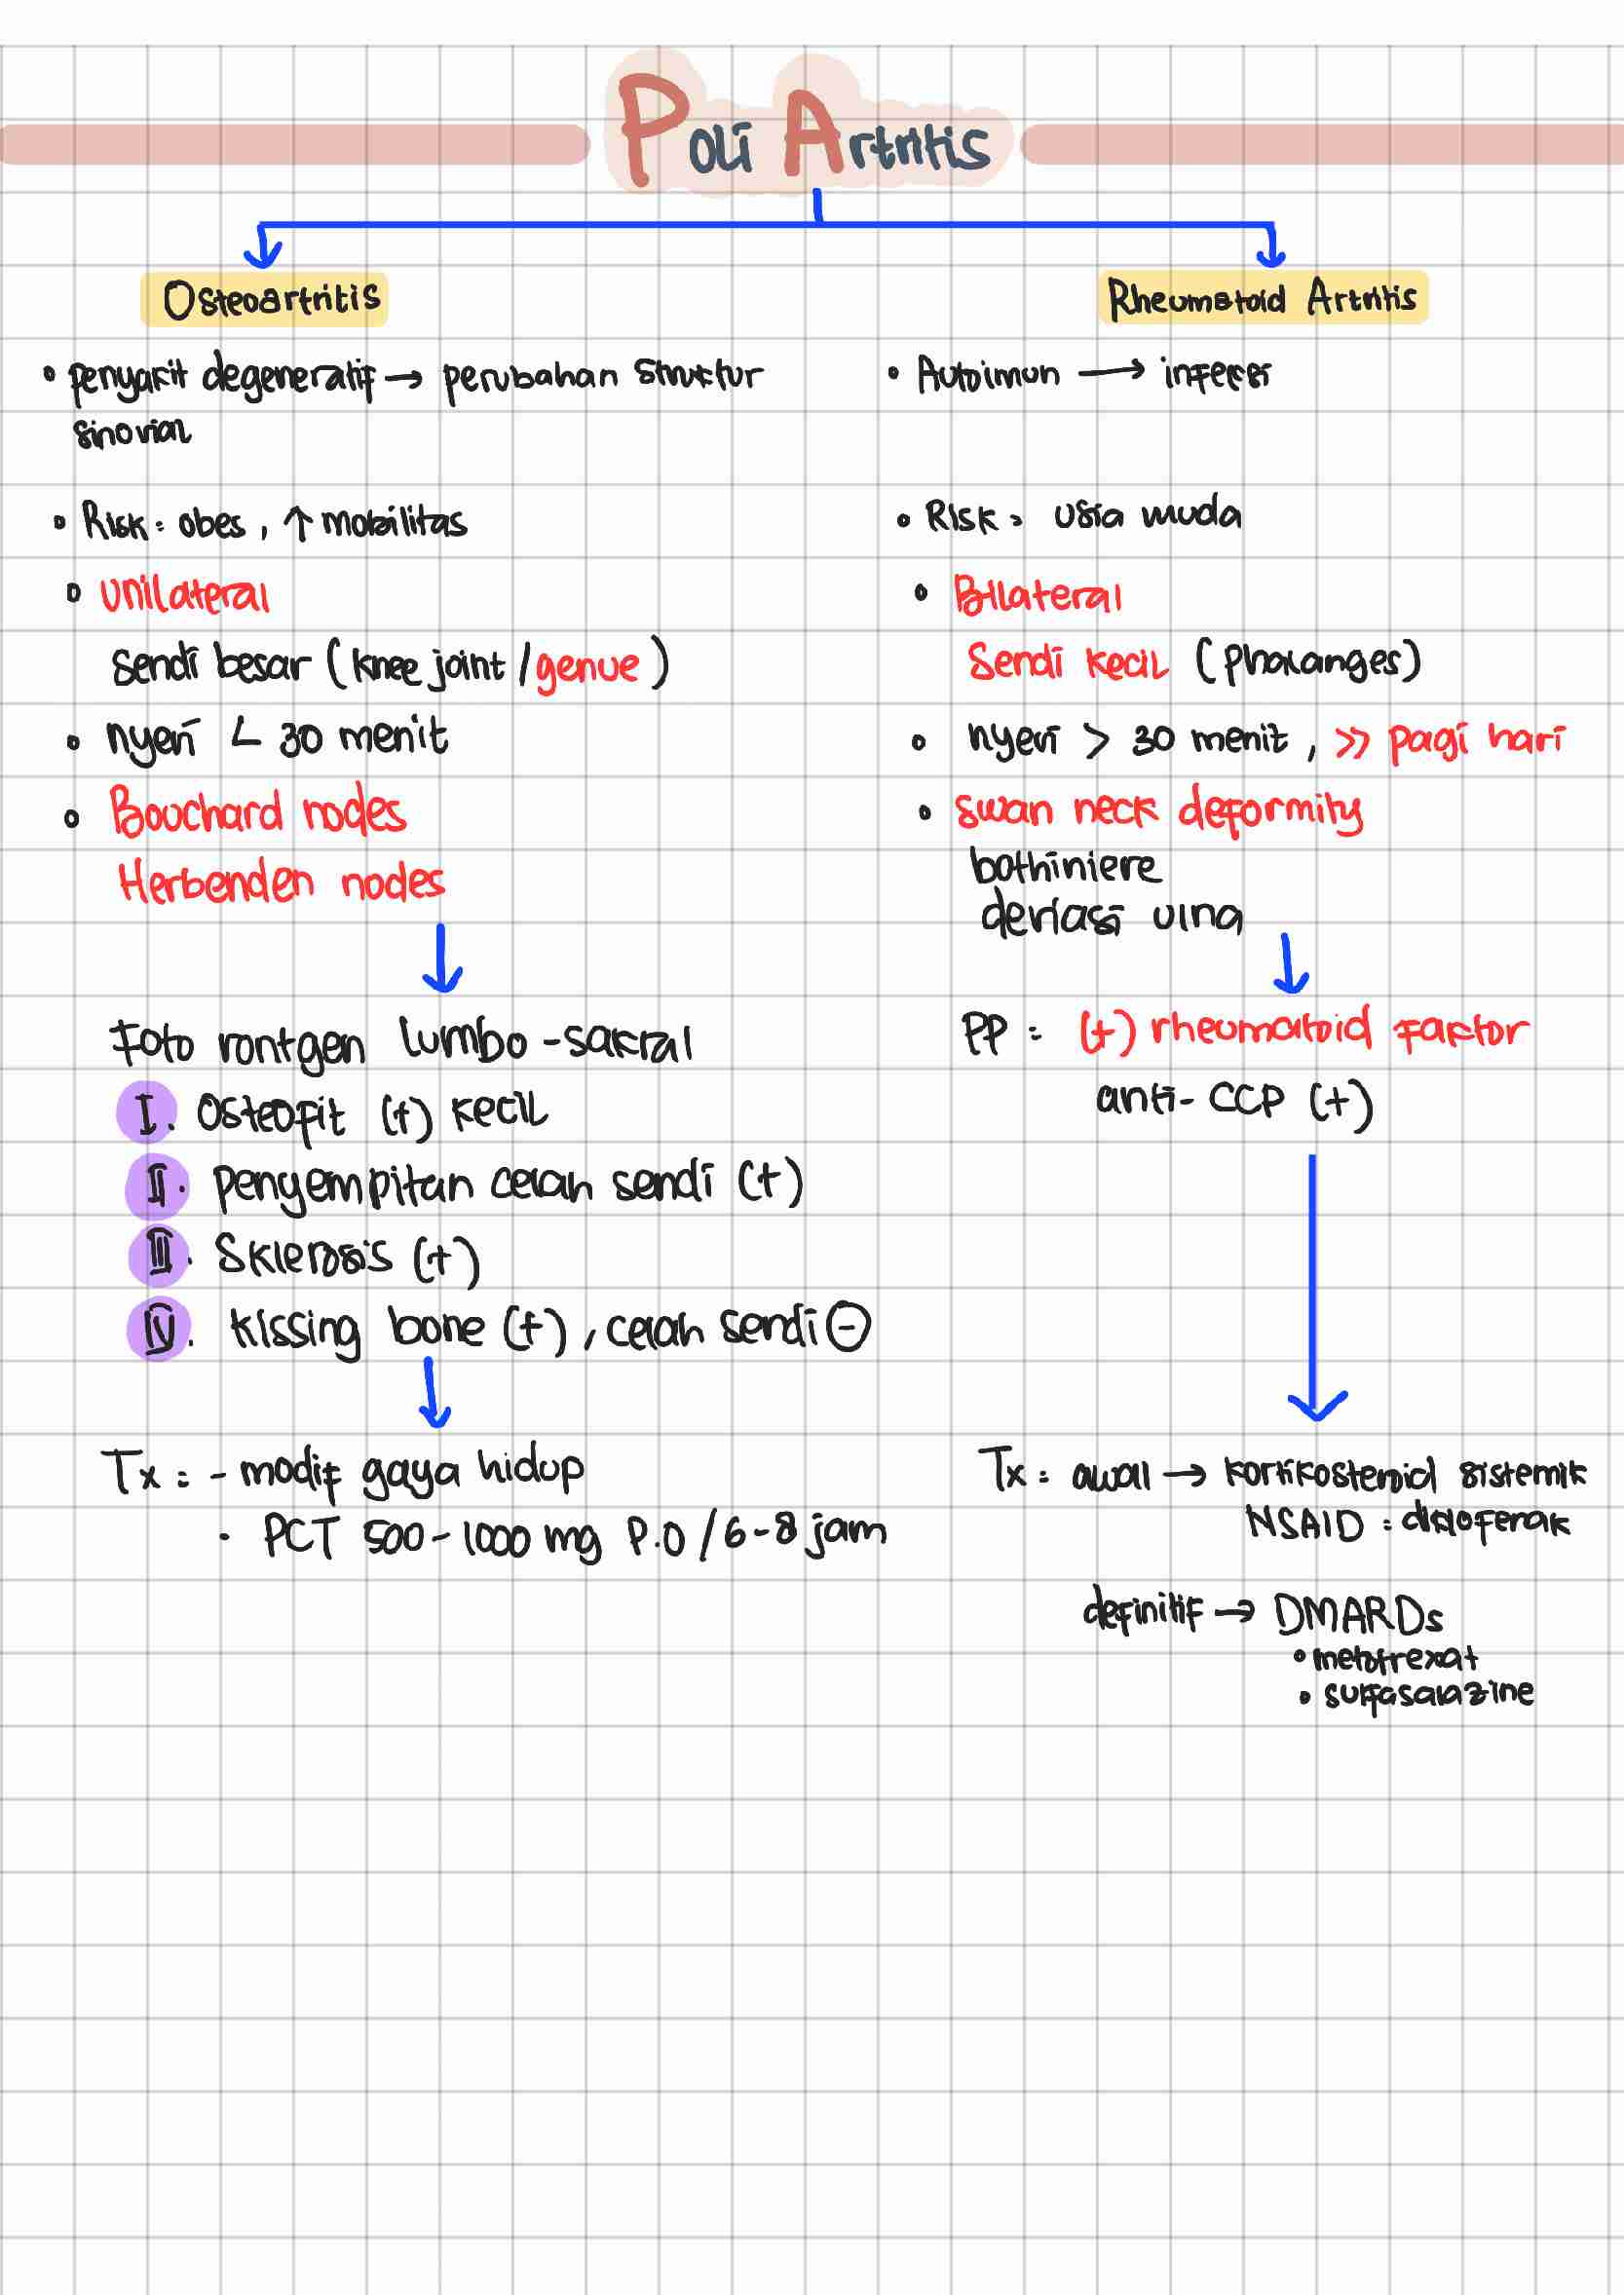 Poli Artritis
Osteoartritis
• penyakit degeneratif → perubahan struktur
sinovial
• Risk = obes, ↑ mobilitas
• unilateral
sendi besar (knee joint / genue)
• nyeri < 30 menit
• Bouchard nodes
Herbenden nodes
Foto rontgen lumbo-sakral
I. Osteofit (+) kecil
II. penyempitan celah sendi (+)
III. Sklerosis (+)
IV. kissing bone (+), celah sendi ⊖
Tx = - modif gaya hidup
- PCT 500-1000 mg P.O / 6-8 jam
Rheumatoid Artritis
• Autoimun → infeksi
• Risk = usia muda
• Bilateral
Sendi kecil (phalanges)
• nyeri > 30 menit, >> pagi hari
• swan neck deformity
bothiniere
deviasi ulna
PP = (+) rheumatoid faktor
anti-CCP (+)
Tx = awal → kortikosteroid sistemik
NSAID = diklofenak
definitif → DMARDs
• metotrexat
• sulfasalazine